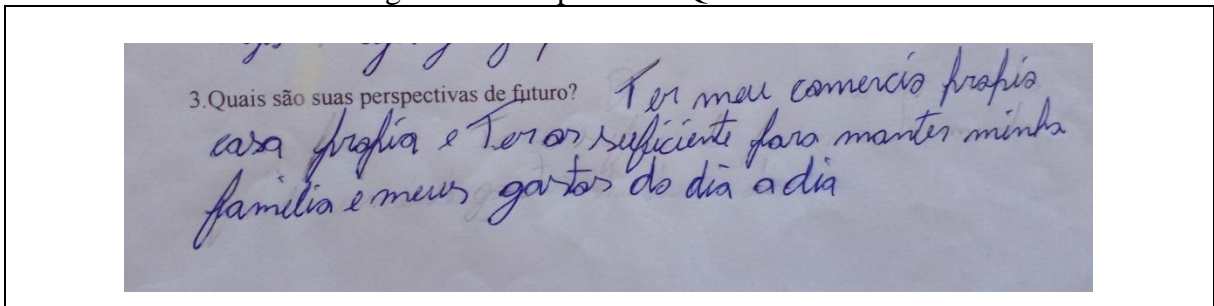 3.Quais são suas perspectivas de futuro? Ter meu comercio propio
casa propia e Ter o suficiente para manter minha
familia e meus gastos do dia a dia